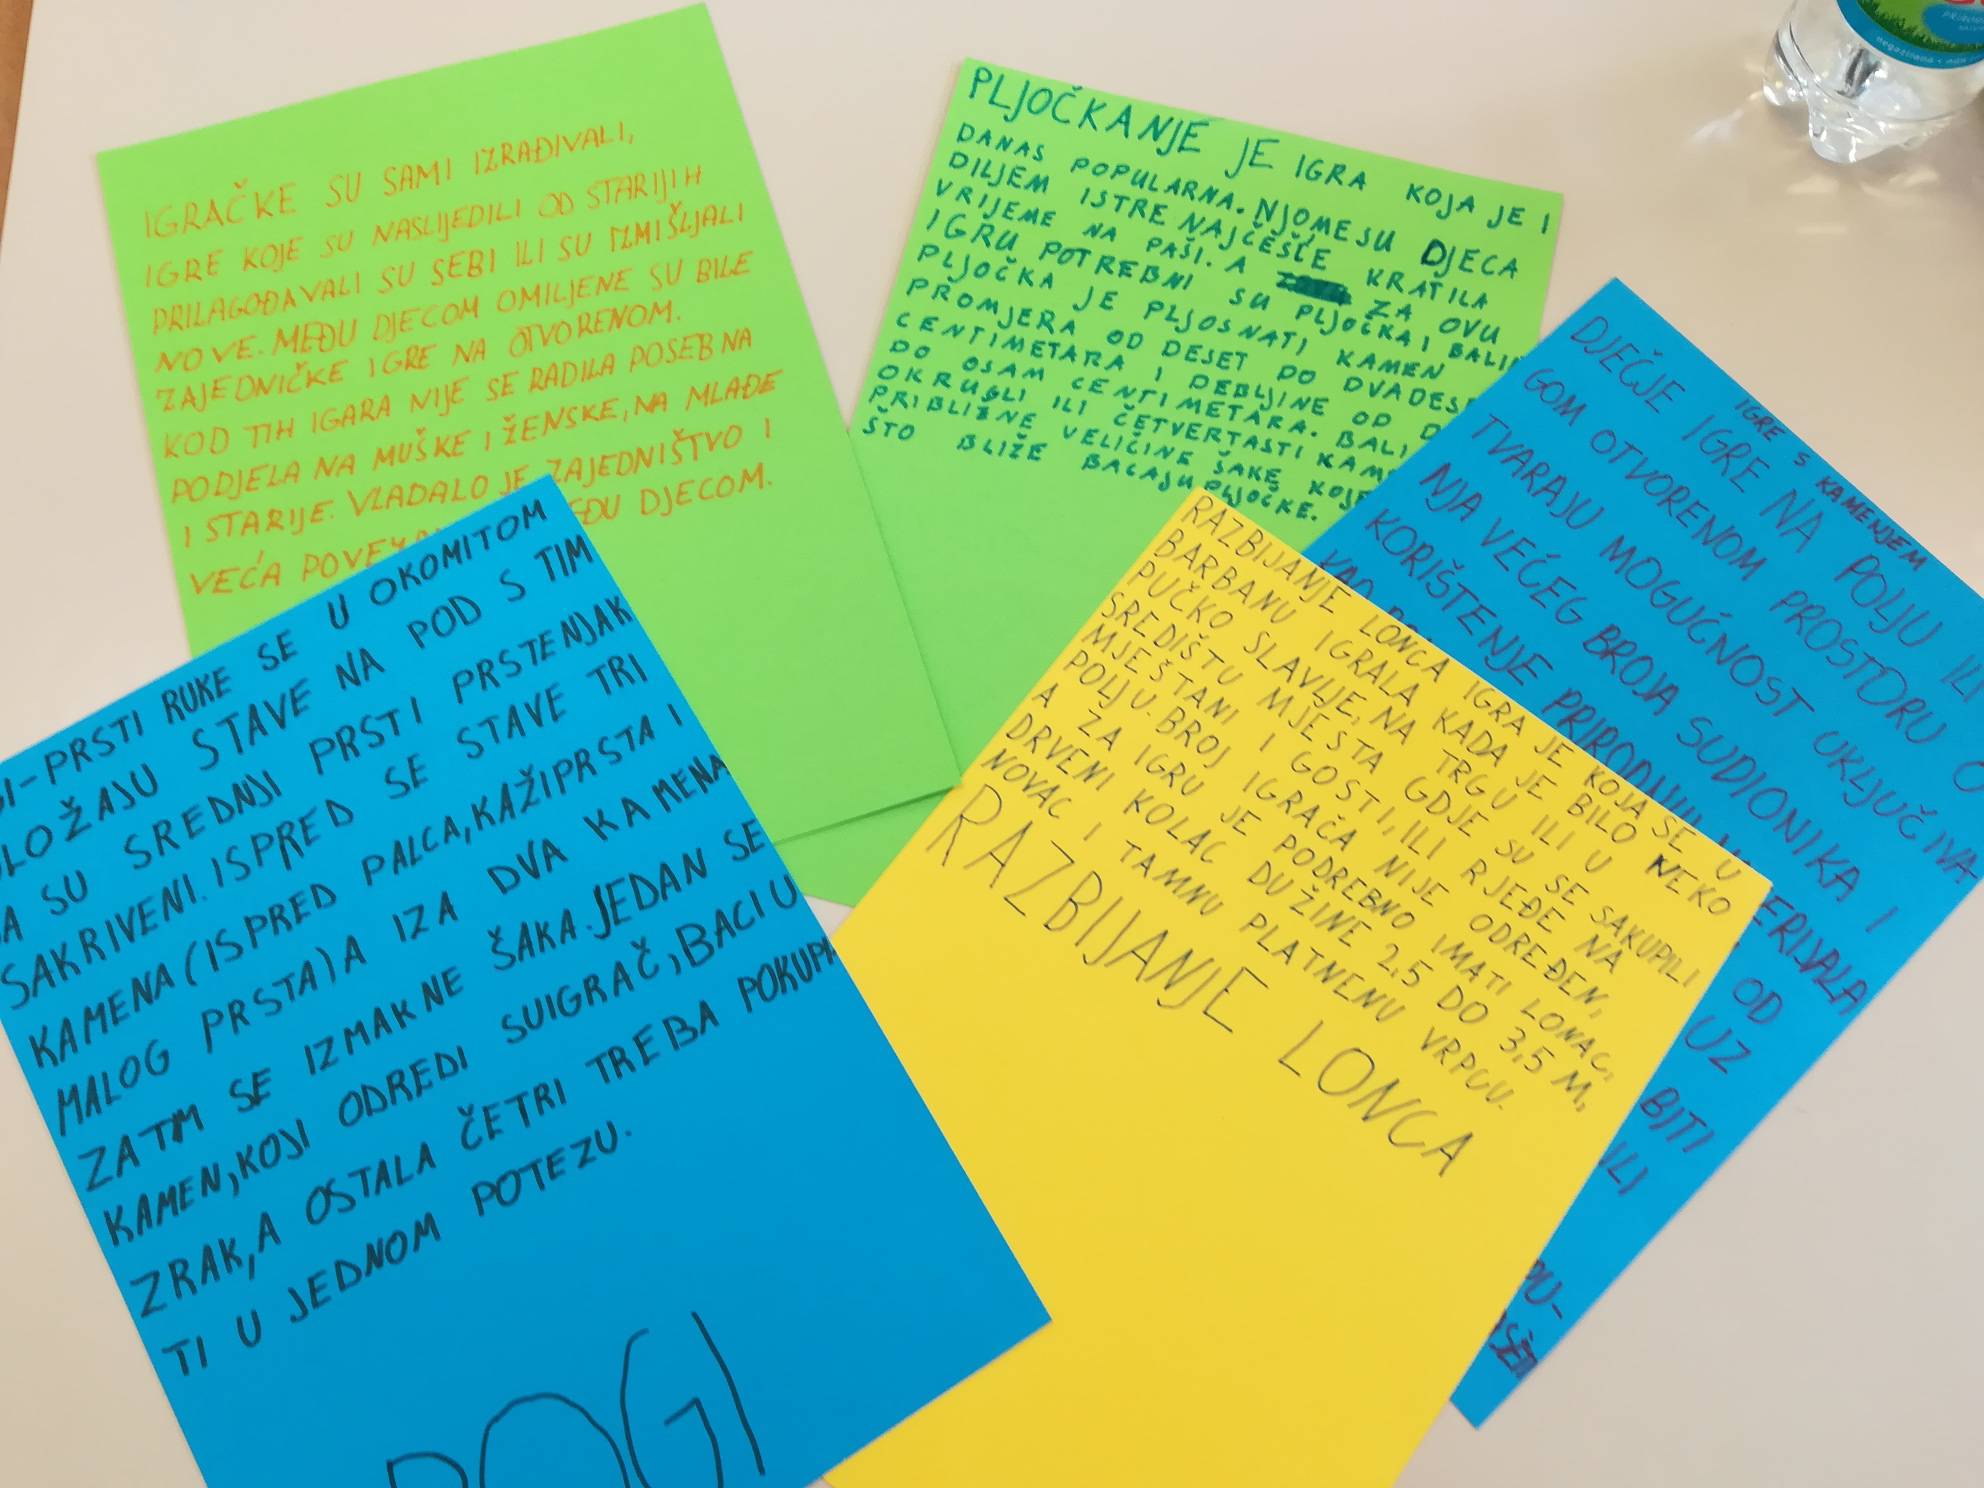 IGRAČKE SU SAMI IZRAĐIVALI,
IGRE KOJE SU NASLIJEDILI OD STARIJIH
PRILAGOĐAVALI SU SEBI ILI SU IZMIŠLJALI
NOVE. MEĐU DJECOM OMILJENE SU BILE
ZAJEDNIČKE IGRE NA OTVORENOM.
KOD TIH IGARA NIJE SE RADILA POSEBNA
PODJELA NA MUŠKE I ŽENSKE, NA MLAĐE
I STARIJE. VLADALO JE ZAJEDNIŠTVO I
VEĆA DJECOM.
PLJOČKANJE JE IGRA KOJA JE I
DANAS POPULARNA. NJOME SU DJECA
DILJEM ISTRE NAJČEŠĆE KRATILA
VRIJEME NA PAŠI. A ZA OVU
IGRU POTREBNI SU PLJOČKA I
PLJOČKA JE PLJOSNATI KAMEN
PROMJERA OD DESET DO
CENTIMETARA I DEBLJINE OD
DO OSAM CENTIMETARA.
OKRUGLI ILI ČETVERTASTI
PRIBLIŽNE VELIČINE ŠAKE
ŠTO BLIŽE BACAJU PLJOČKE.
IGRE S KAMENJEM
DJEČJE IGRE NA POLJU ILI
GOM OTVORENOM PROSTORU O
TVARAJU MOGUĆNOST UKLJUČIVA-
NJA VEĆEG BROJA SUDIONIKA I
KORIŠTENJE
OD
UZ
BITI
ILI
PU-
RAZBIJANJE LONCA IGRA JE KOJA SE U
BARBANU IGRALA KADA JE BILO NEKO
PUČKO SLAVLJE, NA TRGU ILI U
SREDIŠTU MJESTA GDJE SU SE SAKUPILI
MJEŠTANI I GOSTI, ILI RJEĐE NA
POLJU. BROJ IGRAČA NIJE ODREĐEN,
A ZA IGRU JE PODREBNO IMATI LONAC,
DRVENI KOLAC DUŽINE 2,5 DO 3,5 M,
NOVAC I TAMNU PLATNENU VRPCU.
RAZBIJANJE LONCA
-PRSTI RUKE SE U OKOMITOM
LOŽAJU STAVE NA POD S TIM
A SU SREDNJI PRSTI I PRSTENJAK
SAKRIVENI. ISPRED SE STAVE TRI
KAMENA (ISPRED PALCA, KAŽIPRSTA I
MALOG PRSTA) A IZA DVA KAMENA
ZATIM SE IZMAKNE ŠAKA. JEDAN SE
KAMEN, KOJI ODREDI SUIGRAČ, BACI U
ZRAK, A OSTALA ČETRI TREBA POKUPI
TI U JEDNOM POTEZU.
ROGI